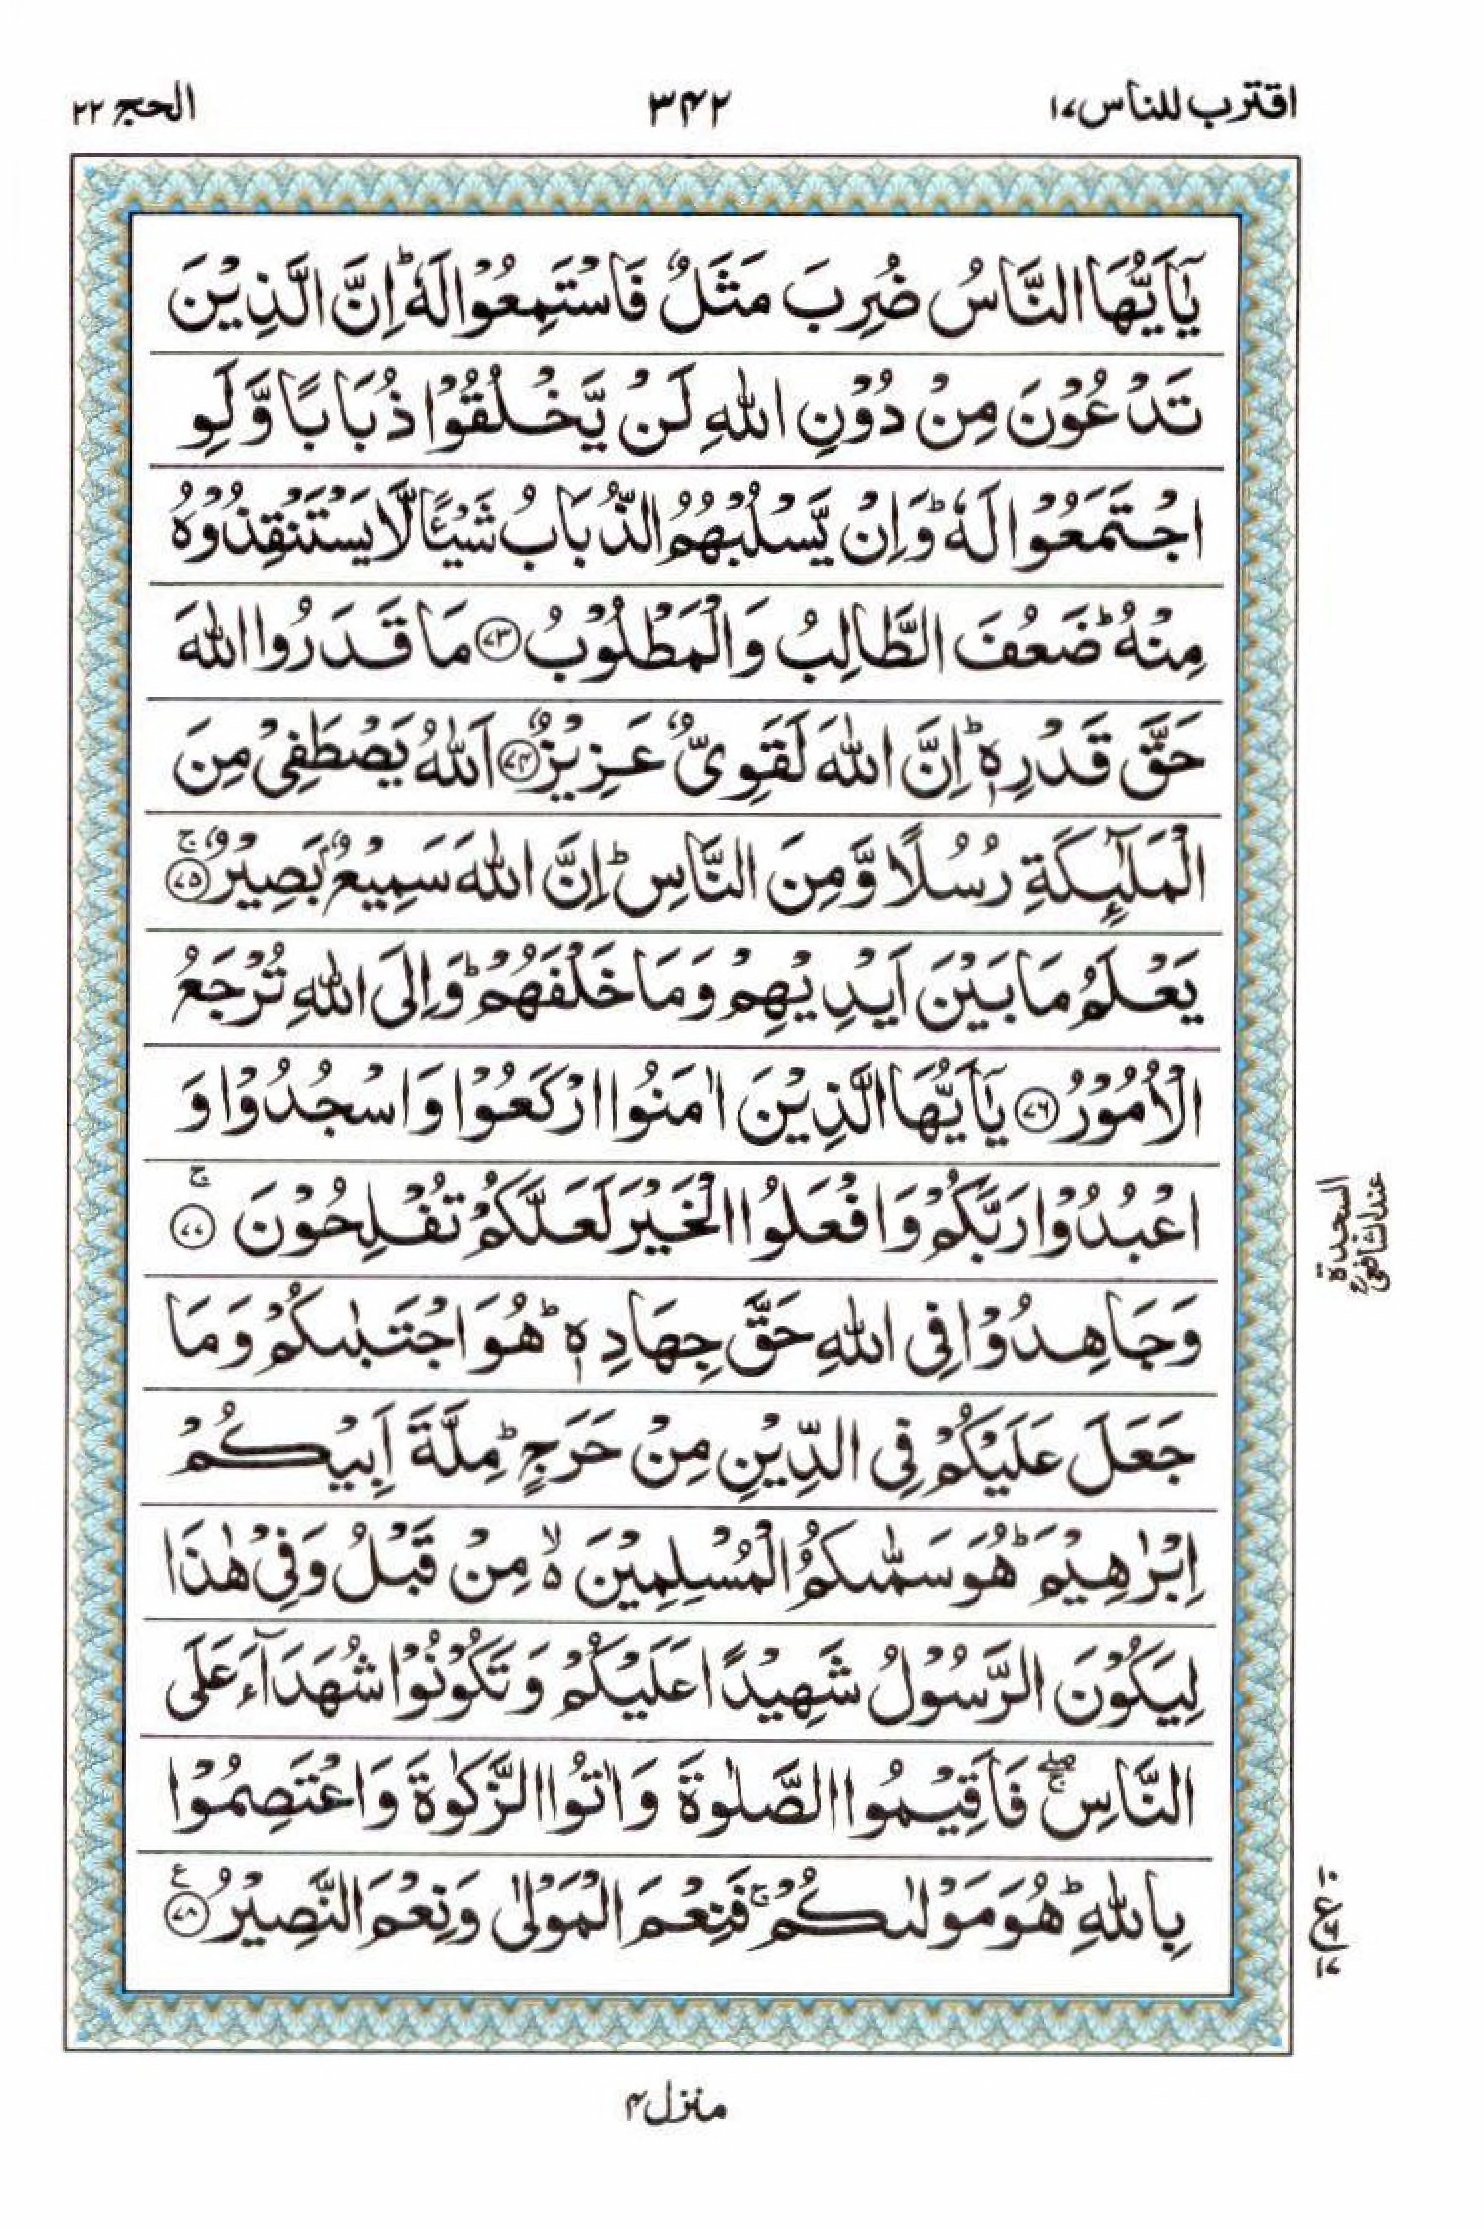 اقترب للناس ۱۷
۳۴۲
الحج ۲۲
يٰۤاَيُّهَا النَّاسُ ضُرِبَ مَثَلٌ فَاسْتَمِعُوْا لَهٗ ؕ اِنَّ الَّذِيْنَ
تَدْعُوْنَ مِنْ دُوْنِ اللّٰهِ لَنْ يَّخْلُقُوْا ذُبَابًا وَّلَوِ
اجْتَمَعُوْا لَهٗ ؕ وَاِنْ يَّسْلُبْهُمُ الذُّبَابُ شَيْئًا لَّا يَسْتَنْقِذُوْهُ
مِنْهُ ؕ ضَعُفَ الطَّالِبُ وَالْمَطْلُوْبُ ۷۳ مَا قَدَرُوا اللّٰهَ
حَقَّ قَدْرِهٖ ؕ اِنَّ اللّٰهَ لَقَوِىٌّ عَزِيْزٌ ۷۴ اَللّٰهُ يَصْطَفِىْ مِنَ
الْمَلٰٓئِكَةِ رُسُلًا وَّمِنَ النَّاسِ ؕ اِنَّ اللّٰهَ سَمِيْعٌۢ بَصِيْرٌ ۚ ۷۵
يَعْلَمُ مَا بَيْنَ اَيْدِيْهِمْ وَمَا خَلْفَهُمْ ؕ وَاِلَى اللّٰهِ تُرْجَعُ
الْاُمُوْرُ ۷۶ يٰۤاَيُّهَا الَّذِيْنَ اٰمَنُوا ارْكَعُوْا وَاسْجُدُوْا وَ
اعْبُدُوْا رَبَّكُمْ وَافْعَلُوا الْخَيْرَ لَعَلَّكُمْ تُفْلِحُوْنَ ۚ ۷۷
السجدة
عند الشافعي
وَجَاهِدُوْا فِى اللّٰهِ حَقَّ جِهَادِهٖ ؕ هُوَ اجْتَبٰىكُمْ وَمَا
جَعَلَ عَلَيْكُمْ فِى الدِّيْنِ مِنْ حَرَجٍ ؕ مِلَّةَ اَبِيْكُمْ
اِبْرٰهِيْمَ ؕ هُوَ سَمّٰىكُمُ الْمُسْلِمِيْنَ ۙ مِنْ قَبْلُ وَفِىْ هٰذَا
لِيَكُوْنَ الرَّسُوْلُ شَهِيْدًا عَلَيْكُمْ وَتَكُوْنُوْا شُهَدَآءَ عَلَى
النَّاسِ ۖۚ فَاَقِيْمُوا الصَّلٰوةَ وَاٰتُوا الزَّكٰوةَ وَاعْتَصِمُوْا
بِاللّٰهِ ؕ هُوَ مَوْلٰىكُمْ ۚ فَنِعْمَ الْمَوْلٰى وَنِعْمَ النَّصِيْرُ ع ۷۸
۱۰
ع ۶
۱۷
منزل ۴